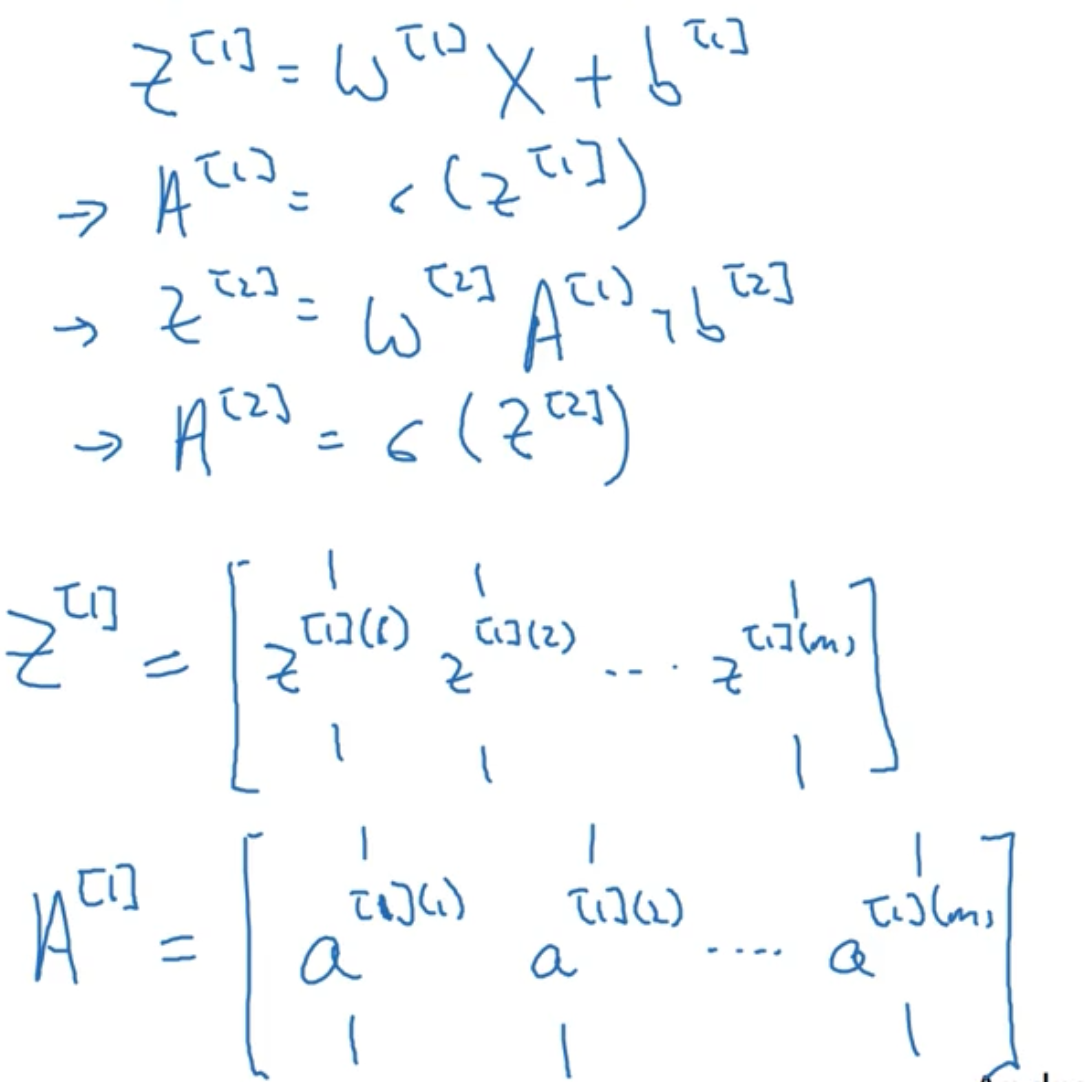 Z^[1] = W^[1] X + b^[1]
→ A^[1] = σ(Z^[1])
→ Z^[2] = W^[2] A^[1] + b^[2]
→ A^[2] = σ(Z^[2])
Z^[1] = [ z^[1](1) z^[1](2) ... z^[1](m) ]
A^[1] = [ a^[1](1) a^[1](2) .... a^[1](m) ]